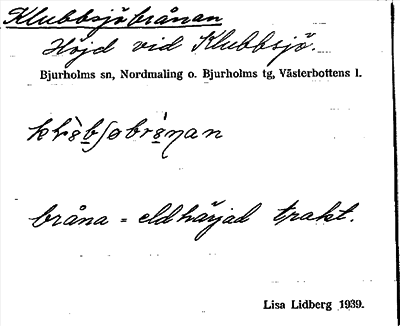 Klubbsjöbrånan
Höjd vid Klubbsjö.
Bjurholms sn, Nordmaling o. Bjurholms tg, Västerbottens l.
bråna = eldhärjad trakt.
Lisa Lidberg 1939.